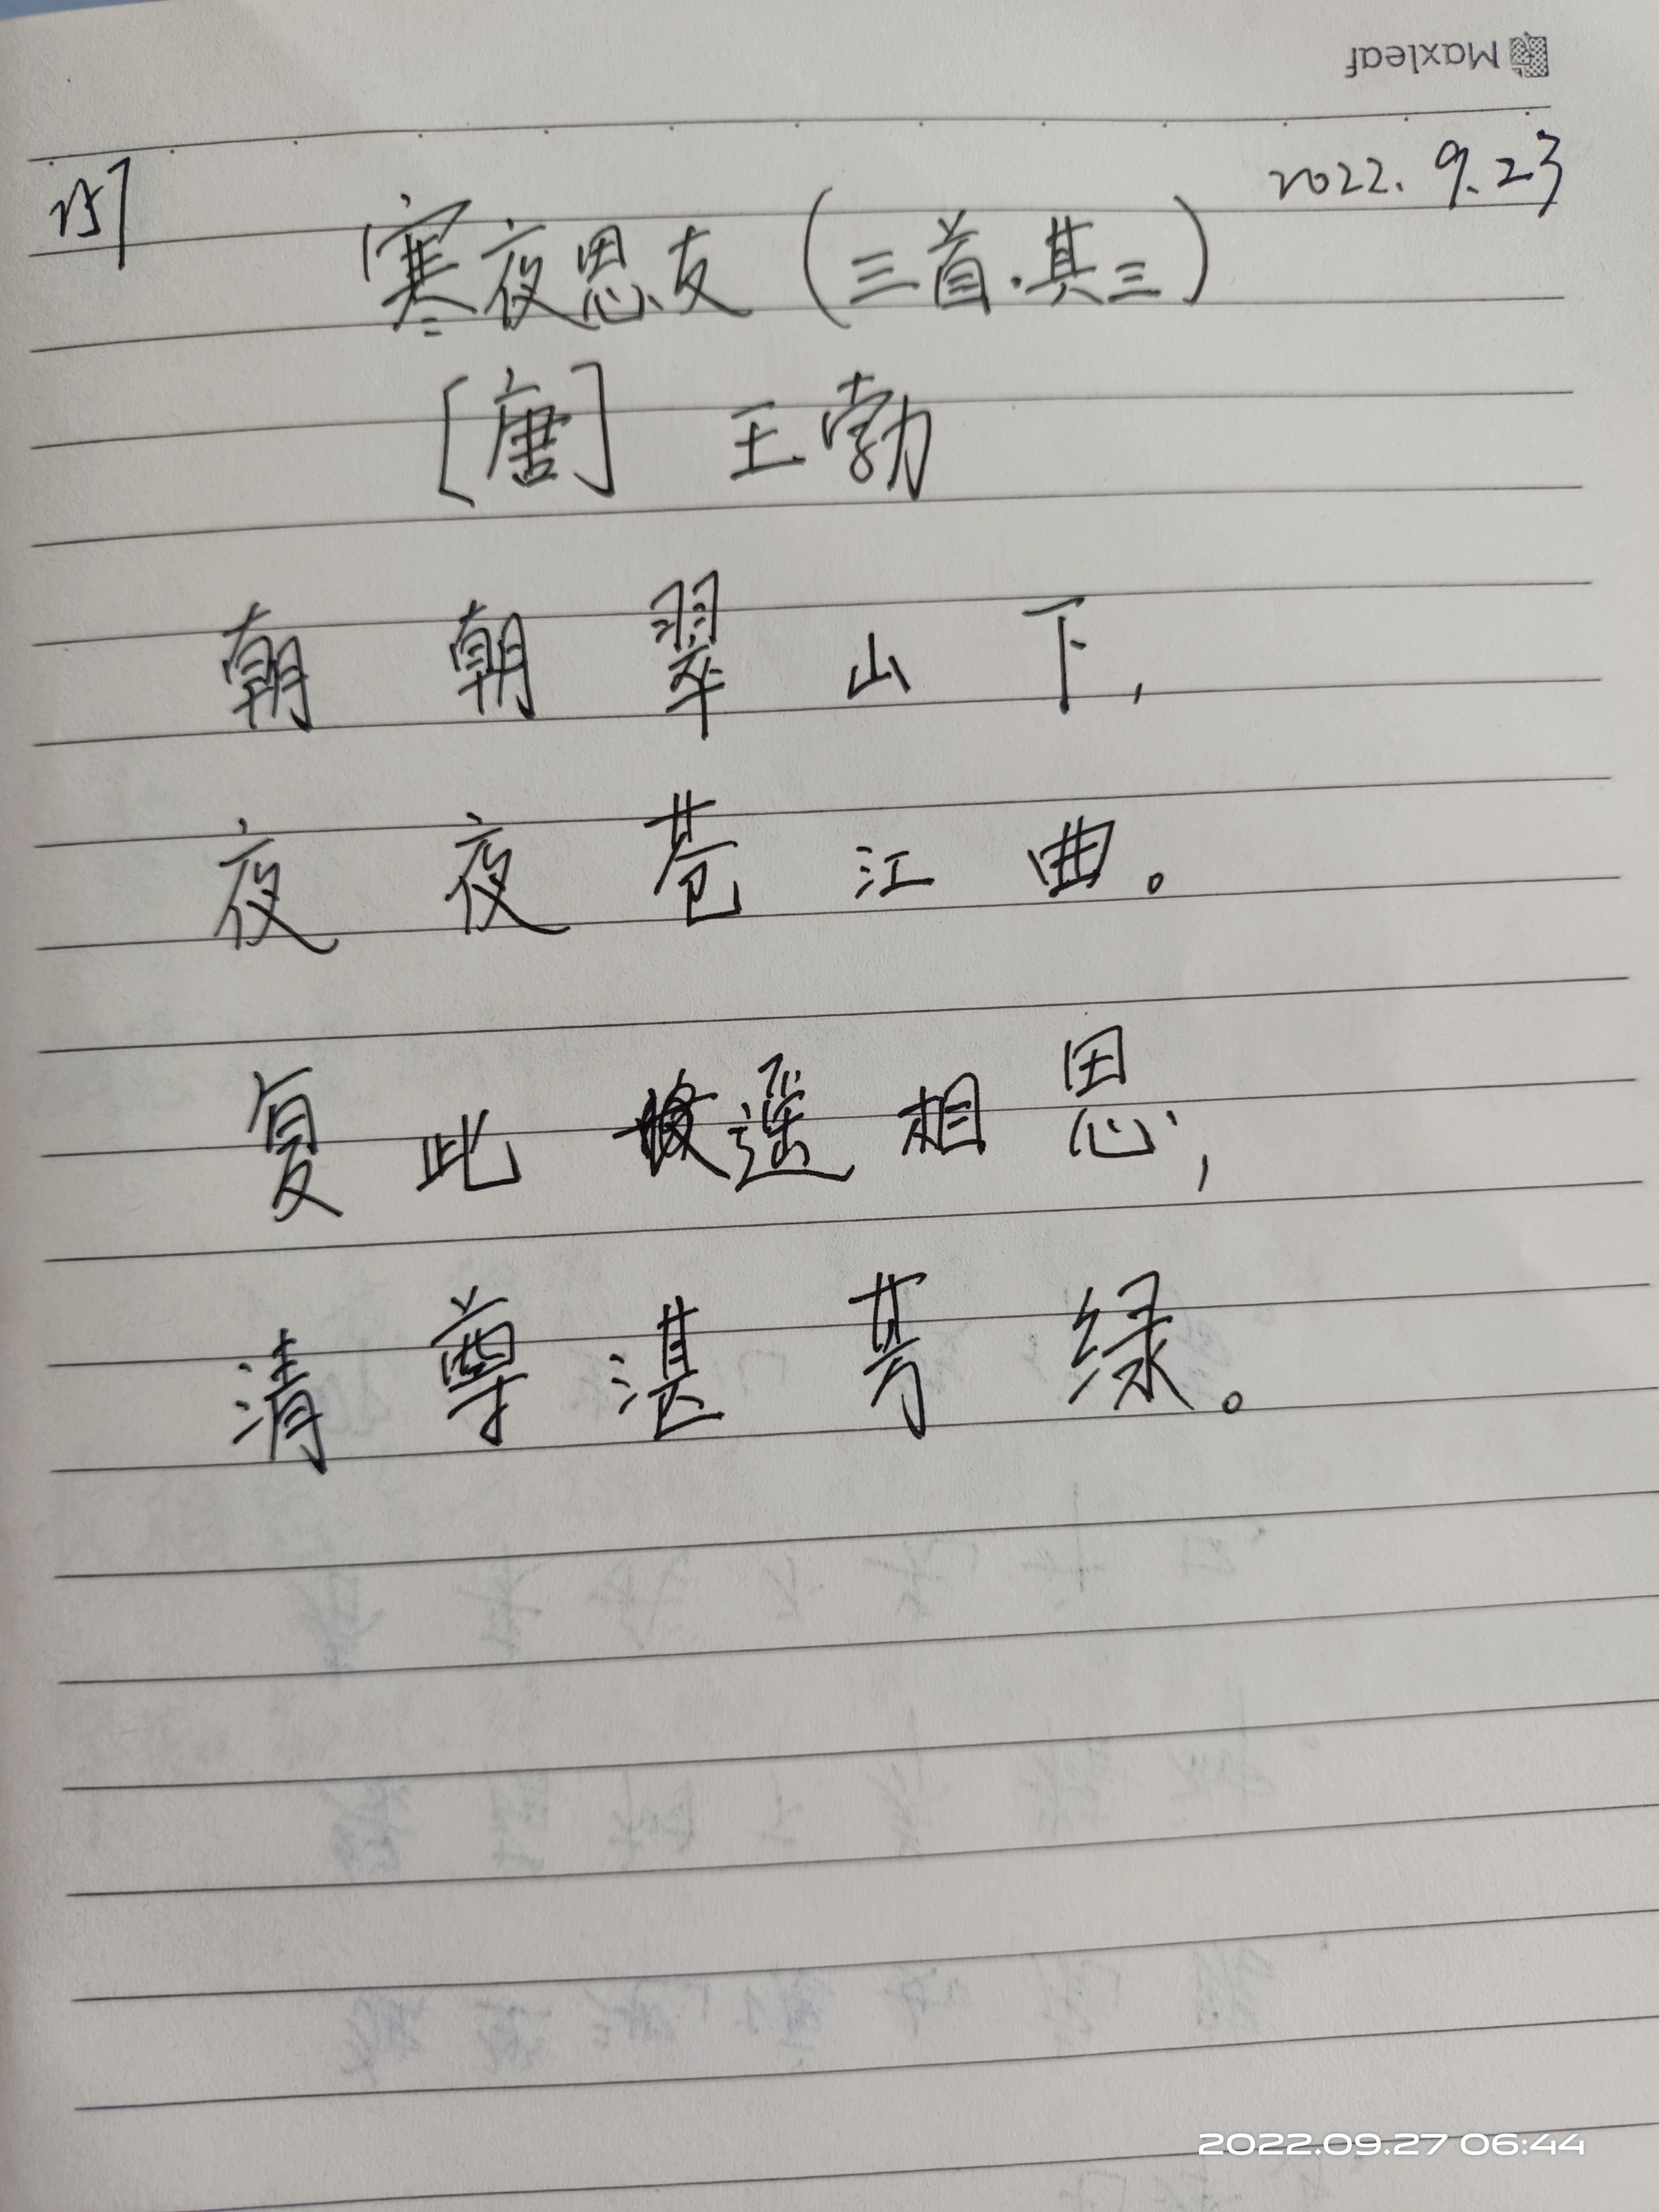 Maxleaf
257
2022.9.23
寒夜思友(三首·其三)
[唐] 王勃
朝朝翠山下,
夜夜苍江曲。
复此遥相思,
清尊湛芳绿。
2022.09.27 06:44